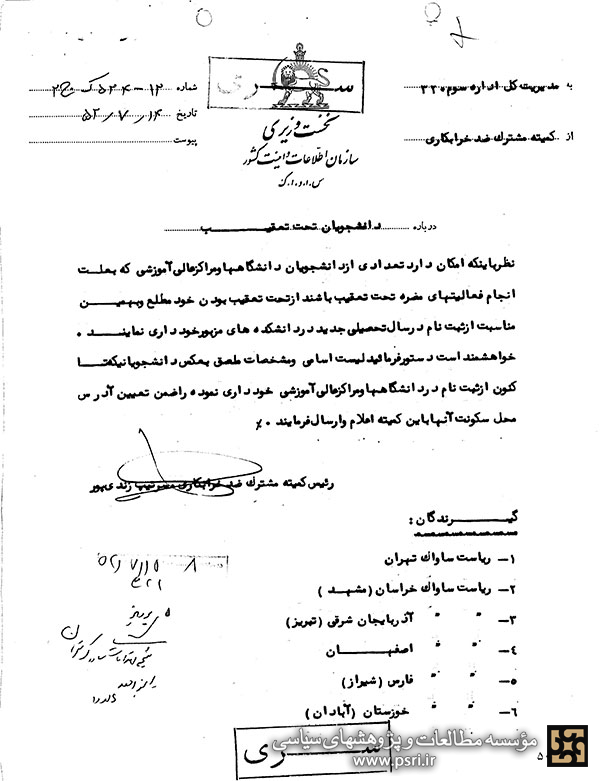 سری
به مدیریت کل اداره سوم ۳۲۰
شماره ۱۲-۵۲۴
از کمیته مشترك ضد خرابکاری
تاریخ ۵۲/۷/۱۴
پیوست
نخست وزیری
سازمان اطلاعات و امنیت کشور
س.ا.و.ا.ك
درباره دانشجویان تحت تعقیب
نظرباینکه امکان دارد تعدادی از دانشجویان دانشگاهها و مراکز عالی آموزشی که بعلت
انجام فعالیتهای مضره تحت تعقیب باشند از تحت تعقیب بودن خود مطلع و بهمین
مناسبت از ثبت نام در سال تحصیلی جدید در دانشکده های مزبور خودداری نمایند .
خواهشمند است دستور فرمائید لیست اسامی و مشخصات ملصق بعکس دانشجویانیکه تا
کنون از ثبت نام در دانشگاهها و مراکز عالی آموزشی خودداری نموده را ضمن تعیین آدرس
محل سکونت آنها باین کمیته اعلام و ارسال فرمایند .%
رئیس کمیته مشترك ضد خرابکاری سرتیپ زندی پور
گیرندگان :
۱- ریاست ساواك تهران
۲- ریاست ساواك خراسان (مشهد)
۳- " " آذربایجان شرقی (تبریز)
۴- " " اصفهان
۵- " " فارس (شیراز)
۶- " " خوزستان (آبادان)
سری
مؤسسه مطالعات و پژوهشهای سیاسی
www.psri.ir